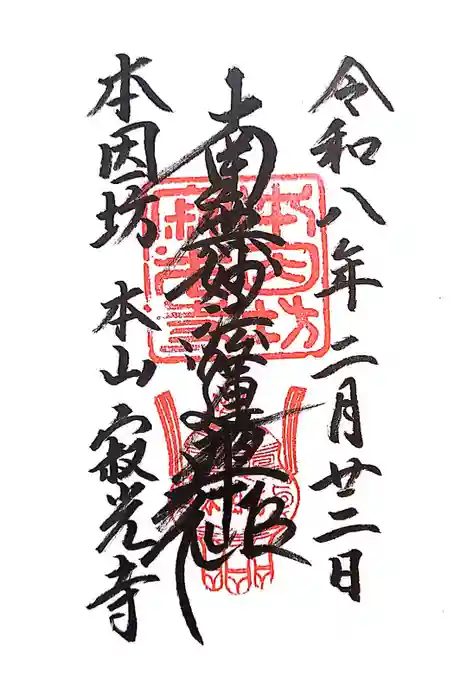 令和八年 二月廿二日
南無妙法蓮華経
本因坊 本山 寂光寺